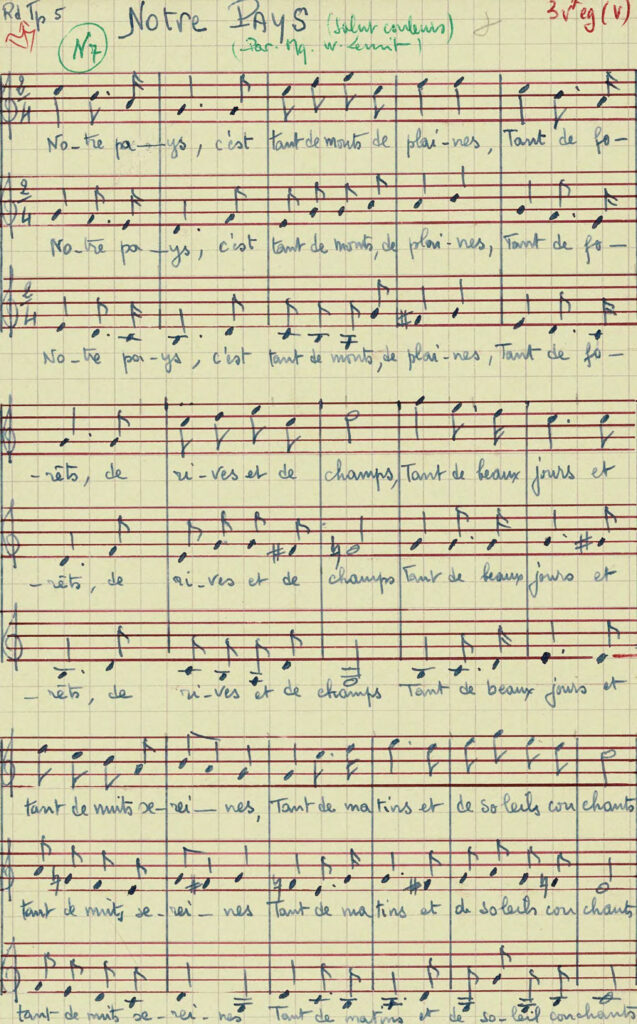 Rd Tp 5
Notre PAYS (Salut couleurs)
3 v^x eg (V)
N°7
(Par. Mg. W. Lenoit)
2/4
No-tre pa-ys, c'est tant de monts de plai-nes, Tant de fo-
2/4
No-tre pa-ys, c'est tant de monts, de plai-nes, Tant de fo-
2/4
No-tre pa-ys, c'est tant de monts, de plai-nes, Tant de fo-
-rêts, de ri-ves et de champs, Tant de beaux jours et
-rêts, de ri-ves et de champs Tant de beaux jours et
-rêts, de ri-ves et de champs Tant de beaux jours et
tant de nuits se-rei-nes, Tant de matins et de soleils couchants
tant de nuits se-rei-nes Tant de matins et de soleils couchants
tant de nuits se-rei-nes Tant de matins et de so-leil couchants